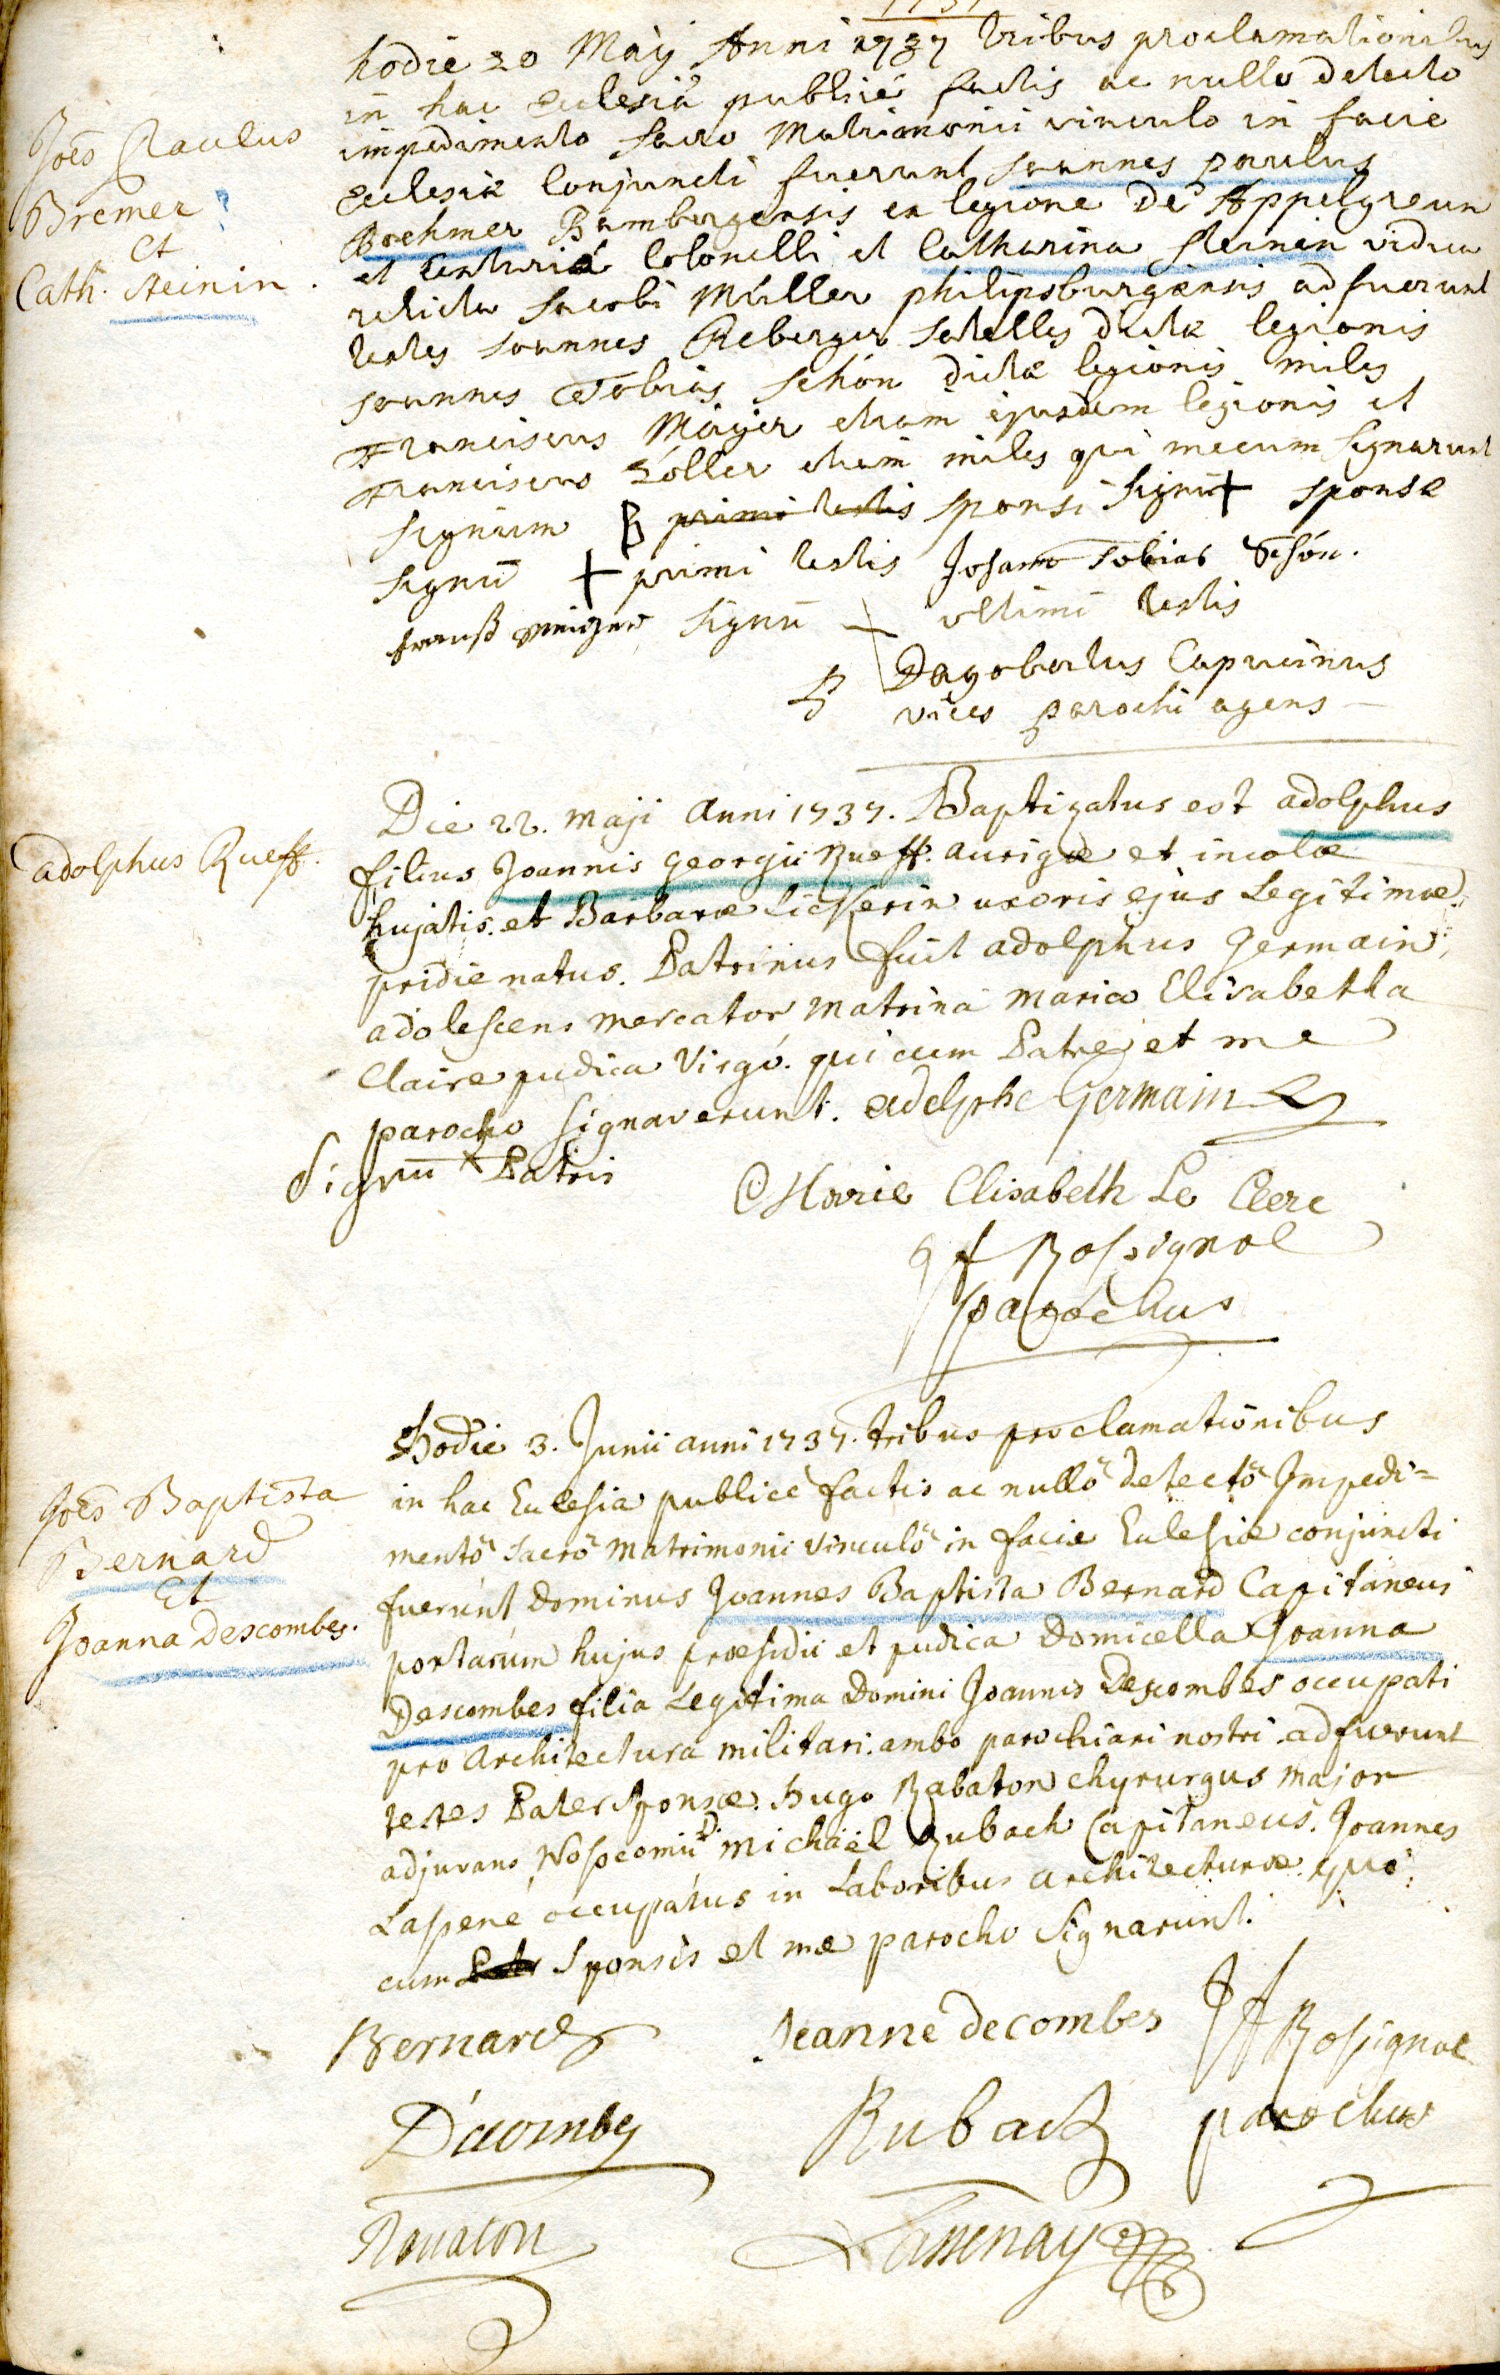 1737
hodie 20 Maÿ Anni 1737 tribus proclamationibus
in hac Ecclesiâ publicé factis ac nullo detecto
impedimento sacro Matrimonii vinculo in facie
Ecclesiæ Conjuncti fuerunt Joannes paulus
Boehmer Bambergensis ex legione De Appelgreun
et Centuriâ Colonelli et Catharina steinin vidua
relicta Jacobi Müller philipsburgensis adfuerunt
testes Joannes Reberger satelles dictæ legionis
Joannes Tobias schön dictæ legionis miles
Franciscus Mäÿer etiam ejusdem legionis et
Franciscus Zöller etiam miles qui mecum signarunt
signum primi testis sponsi signū + sponsæ
signū + primi testis Johann Tobias Schön.
signū + ultimi testis
Dagobertus Capucinus
vices parochi agens
Joēs Paulus
Bremer ?
et
Cath. steinin.
Die 22. Maji Anni 1737. Baptizatus est adolphus
filius Joannis Georgii Rueff. aurigæ et incolæ
hujatis. et Barbaræ Lickerin uxoris ejus Legitimæ.
pridie natus. Patrinus fuit adolphus Germain,
adolescens mercator matrina maria Elisabetha
Claire pudica Virgó. qui cum Patre et me
parocho signaverunt. adolphe Germain
Signū x Patris
Marie Elisabeth Le Clerc
J f Rossignol
parochus
adolphus Rueff.
Hodie 3. Junii anni 1737. tribus proclamationibus
in hac Ecclesia publicè factis ac nullō detectō Impedi=
mentō sacrō Matrimonii vinculō in facie Ecclesiæ conjuncti
fuerunt Dominus Joannes Baptista Bernard Capitaneus
portarum hujus præsidii et pudica Domicella Joanna
Descombes filia Legitima Domini Joannis Descombes occupati
pro Architectura militari. ambo parochiani nostri. adfuerunt
testes Pater sponsæ. Hugo Rabaton chyrurgus major
adjuvans Nosocomii D. Michaël Rubach Capitaneus. Joannes
Laspene occupatus in Laboribus architecturæ. qui
cum Sponsis et me parocho signarunt.
Joēs Baptista
Bernard
Et
Joanna Descombes.
Bernard
Jeanne decombes
J f Rossignol
parochus
Décombes
Rubach
Rouaton
Lassenay